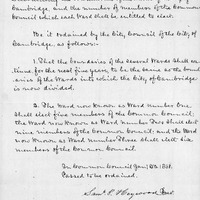 Cambridge, and the number of members of the Common
Council which each Ward shall be entitled to elect.
Be it ordained by the City Council of the City of
Cambridge, as follows:-
1. That the boundaries of the several Wards shall con-
tinue for the next five years, to be the same as the bound-
aries of the Wards into which the City of Cambridge
is now divided.
2. The Ward now known as Ward number One
shall elect five members of the Common Council;
the Ward now known as Ward number Two shall elect
nine members of the Common Council; and the Ward
now known as Ward number Three shall elect six
members of the Common Council.
In Common Council Jany
Passed to be ordained.
Saml P. Heywood Pres.